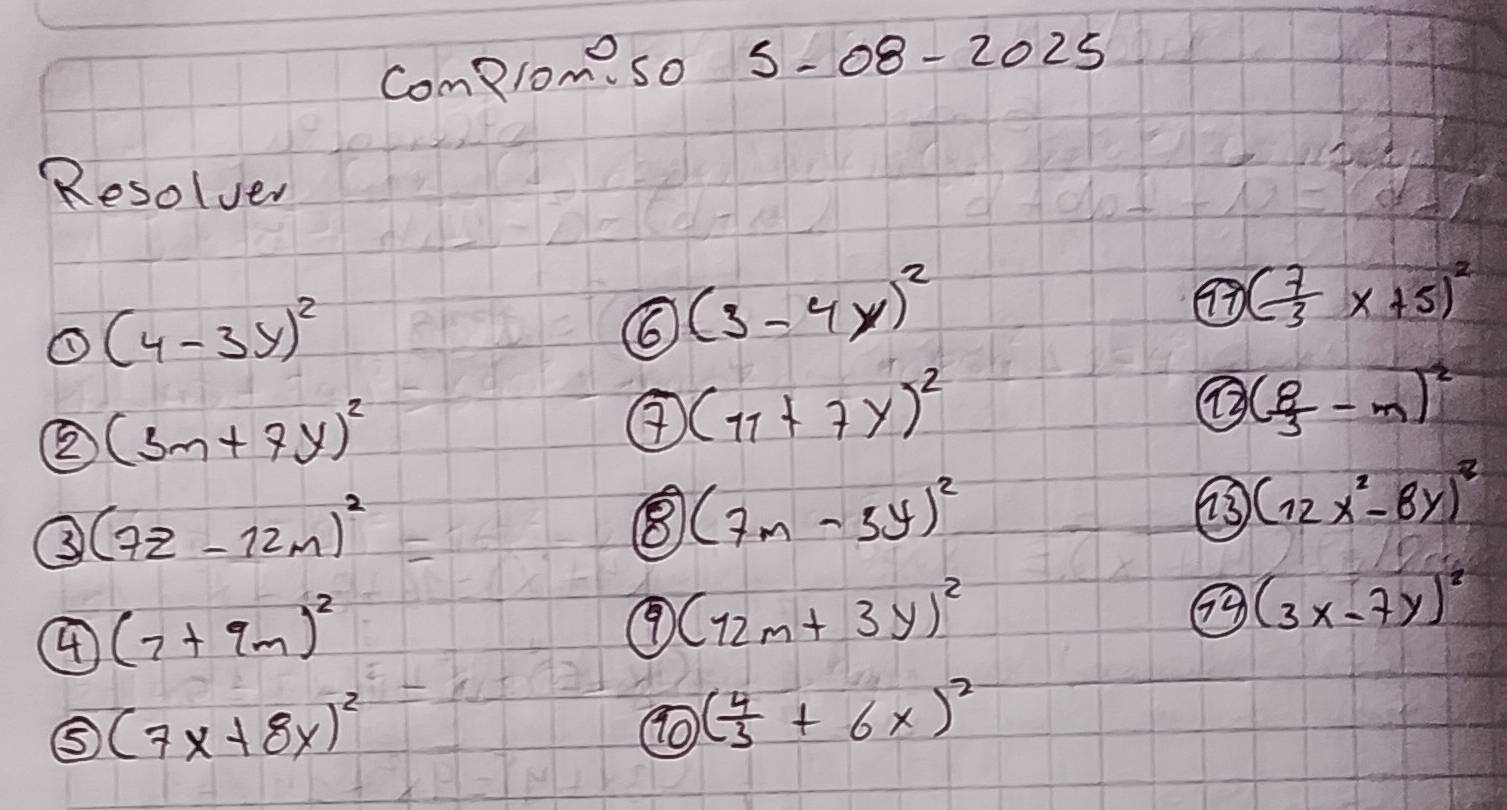 Compromiso 5-08-2025
Resolver
① (4-3y)²
② (3m+7y)²
③ (7z-12m)² =
④ (7+9m)²
⑤ (7x+8y)²
⑥ (3-4y)²
⑦ (11+7y)²
⑧ (7m-3y)²
⑨ (12m+3y)²
⑩ (4/3+6x)²
⑪ (7/3 x+5)²
⑫ (8/3-m)²
⑬ (12x²-8y)²
⑭ (3x-7y)²